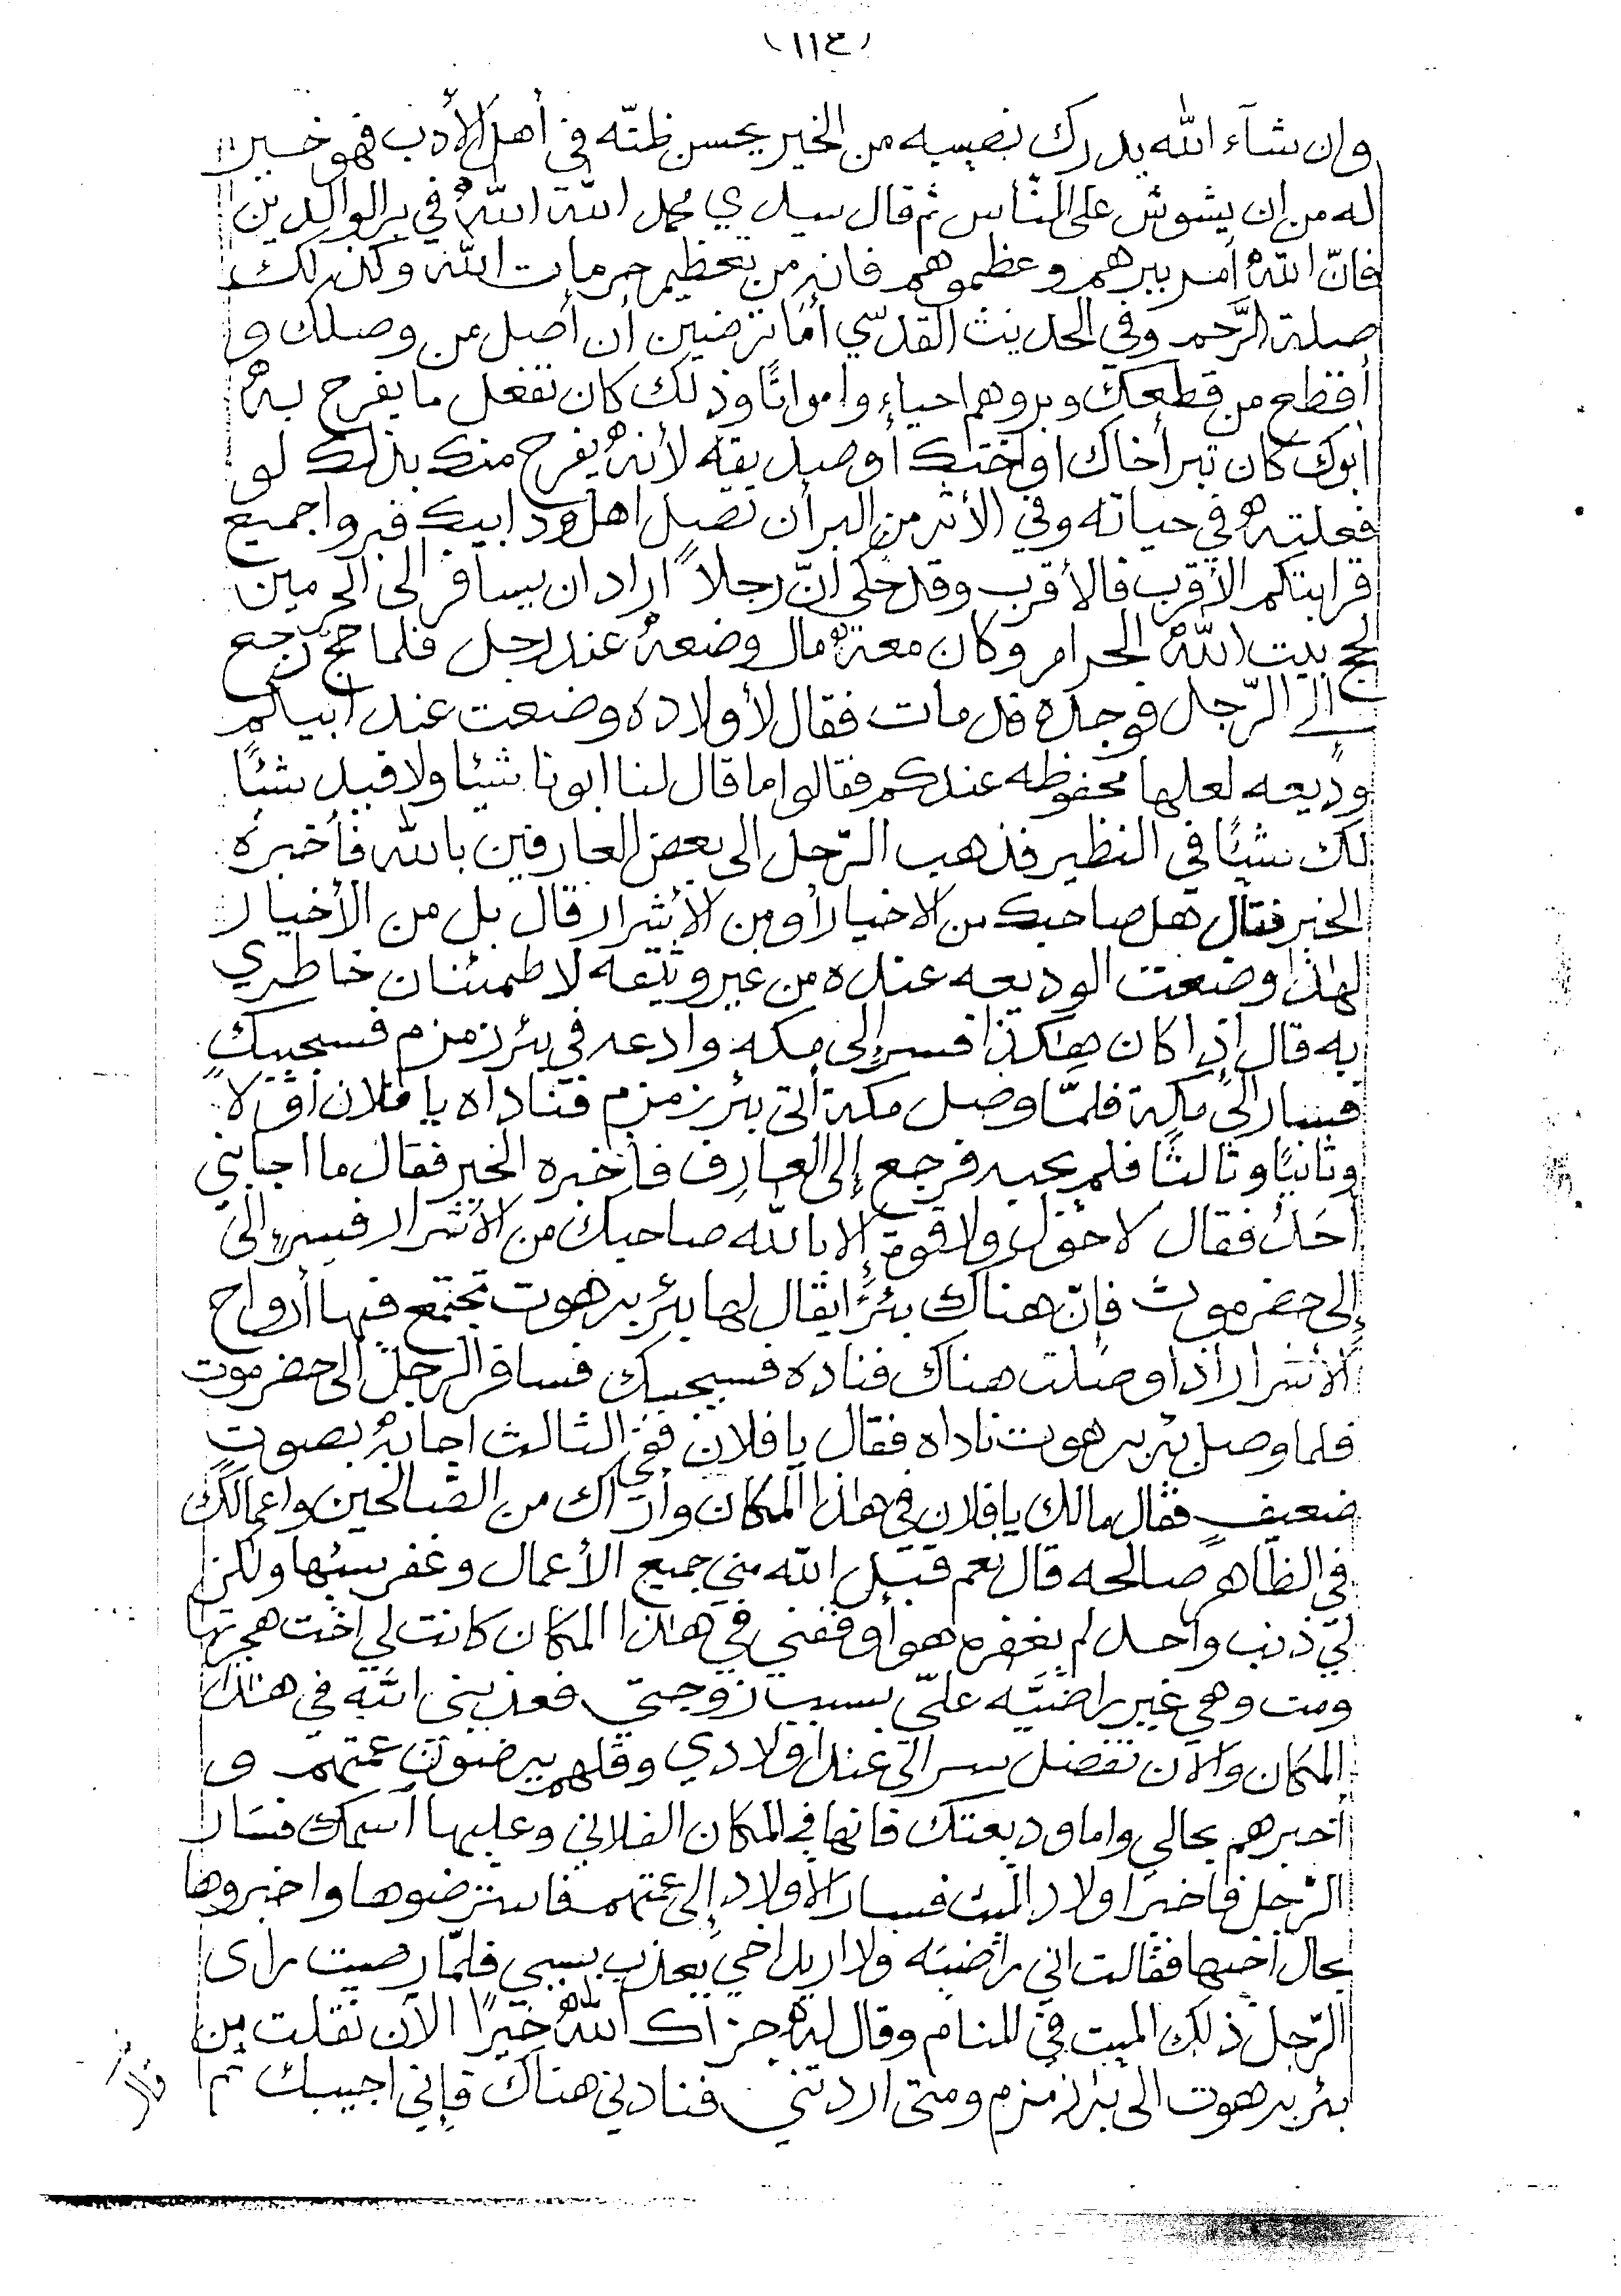 (١١٣)
وان شآء الله يدرك نصيبه من الخير بحسن ظنّه في أهل الأدب فهو خير
له من ان يشوش على النّاس ثم قال سيدي محمد الله اللهُ في بر الوالدين
فانّ اللهُ أمر ببرهم وعظموهم فانه من تعظيم حرمات الله وكذلك
صلة الرَّحم وفي الحديث القدسّي أما ترضين أن أصل من وصلك و
أقطع من قطعك وبروهم احياءٍ وامواتًا وذلك كان تفعل ما يفرح بهُ
أبوك كان تبر أخاك او اختك أو صديقه لأنهُ يفرح منك بذلك لو
فعلتهُ في حياته وفي الأثر من البر أن تصل اهل ود ابيك فبروا جميع
قرابتكم الأقرب فالأقرب وقد حكي انّ رجلاً اراد ان يسافر الى الحرمين
لحج بيت اللهُ الحرام وكان معهُ مال وضعهُ عند رجل فلما حج رجع
الى الرّجل فوجده قد مات فقال لأولاده وضعت عند ابيكم
وديعه لعلها محفوظه عندكم فقالوا ما قال لنا ابونا شيئا ولا قيد شيئًا
لك شيئًا في النظير فذهب الرّجل الى بعض العارفين بالله فأخبره
الخبر فقال هل صاحبك من الاخيار أو من الأشرار قال بل من الأخيار
لهذا وضعت الوديعه عنده من غير وثيقه لاطمئنان خاطري
به قال اذا كان هكذا فسر إلى مكه وادعه في بئر زمزم فسيجيبك
فسار الى مكة فلمّا وصل مكة أتى بئر زمزم فناداه يا فلان أوّلا
وثانيًا وثالثًا فلم يجبه فرجع إلى العارف فأخبره الخبر فقال ما اجابني
أحد فقال لا حول ولا قوة إلا بالله صاحبك من الأشرار فسر الى
إلى حضرموت فإنّ هناك بئرًا يقال لها بئر برهوت تجتمع فيها أرواح
الأشرار اذا وصلت هناك فناده فسيجيبك فسافر الرجل الى حضرموت
فلما وصل بئر برهوت ناداه فقال يا فلان ففي الثالث اجابهُ بصوت
ضعيف فقال مالك يا فلان في هذا المكان وأراك من الصّالحين واعمالك
في الظاهر صالحه قال نعم قبل الله مني جميع الأعمال وغفر سيئها ولكن
لي ذنب واحد لم يغفره هو أوقفني في هذا المكان كانت لي اخت هجرتها
ومت وهي غير راضيّه عليّ بسبب زوجتي فعذبني الله في هذا
المكان والآن تفضل سر الى عند اولادي وقلهم يرضون عمتهم و
أخبرهم بحالي واما وديعتك فانها في المكان الفلاني وعليها اسمك فسار
الرّجل فاخبر اولاد الميت فسار الأولاد إلى عمتهم فاسترضوها واخبروها
بحال أخيها فقالت اني راضيه ولا اريد اخي يعذب بسببي فلمّا رضيت رأى
الرّجل ذلك الميت في المنام وقال لهُ جزاك اللهُ خيرًا الآن نقلت من
بئر برهوت الى بئر زمزم ومتى اردتني فنادني هناك فإني اجيبك ثم
قال